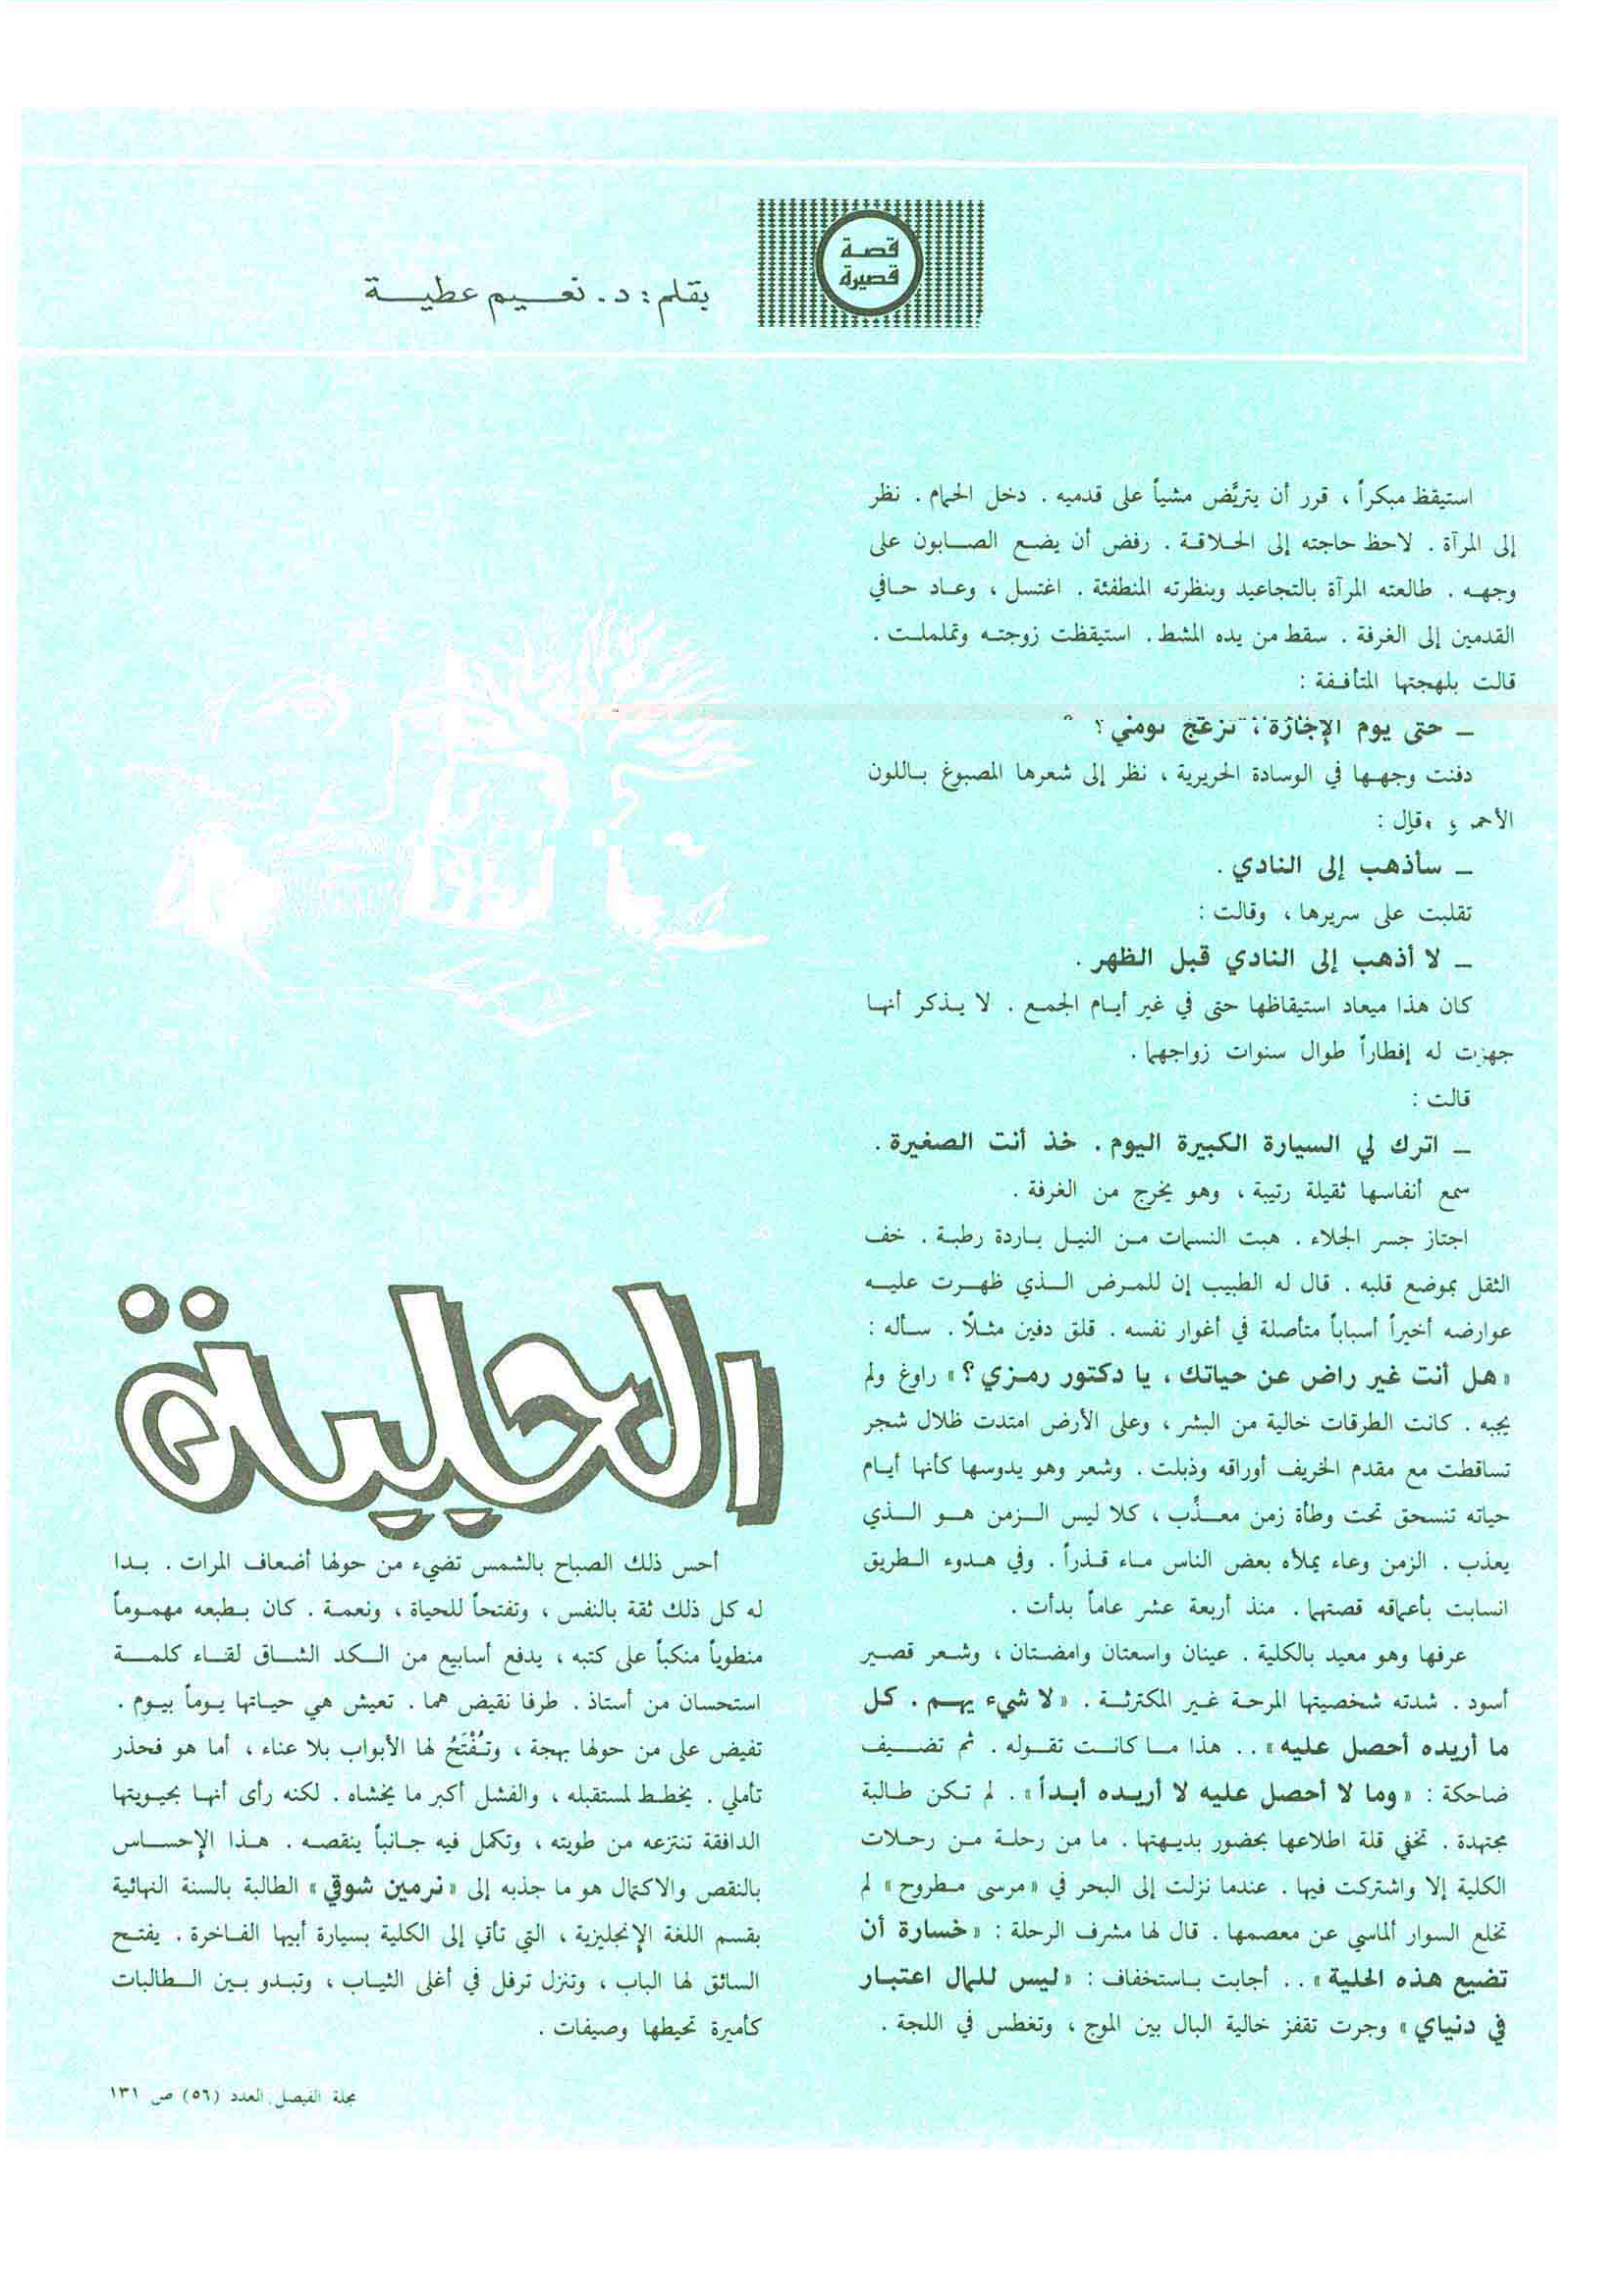 قصة
قصيرة
بقلم: د. نعيم عطية
استيقظ مبكراً ، قرر أن يتريَّض مشياً على قدميه . دخل الحمام . نظر
إلى المرآة . لاحظ حاجته إلى الحلاقة . رفض أن يضع الصابون على
وجهه . طالعته المرآة بالتجاعيد وبنظرته المنطفئة . اغتسل ، وعاد حافي
القدمين إلى الغرفة . سقط من يده المشط . استيقظت زوجته وتململت .
قالت بلهجتها المتأففة :
ـ حتى يوم الإجازة ، تزعج نومي ؟
دفنت وجهها في الوسادة الحريرية ، نظر إلى شعرها المصبوغ باللون
الأحمر ، وقال :
ـ سأذهب إلى النادي .
تقلبت على سريرها ، وقالت :
ـ لا أذهب إلى النادي قبل الظهر .
كان هذا ميعاد استيقاظها حتى في غير أيام الجمع . لا يذكر أنها
جهزت له إفطاراً طوال سنوات زواجهما .
قالت :
ـ اترك لي السيارة الكبيرة اليوم . خذ أنت الصغيرة .
سمع أنفاسها ثقيلة رتيبة ، وهو يخرج من الغرفة .
اجتاز جسر الجلاء . هبت النسمات من النيل باردة رطبة . خف
الثقل بموضع قلبه . قال له الطبيب إن للمرض الذي ظهرت عليه
عوارضه أخيراً أسباباً متأصلة في أغوار نفسه . قلق دفين مثلاً . سأله :
« هل أنت غير راض عن حياتك ، يا دكتور رمزي ؟ » راوغ ولم
يجبه . كانت الطرقات خالية من البشر ، وعلى الأرض امتدت ظلال شجر
تساقطت مع مقدم الخريف أوراقه وذبلت . وشعر وهو يدوسها كأنها أيام
حياته تنسحق تحت وطأة زمن معذِّب ، كلا ليس الزمن هو الذي
يعذب . الزمن وعاء يملأه بعض الناس ماء قذراً . وفي هدوء الطريق
انسابت بأعماقه قصتهما . منذ أربعة عشر عاماً بدأت .
عرفها وهو معيد بالكلية . عينان واسعتان وامضتان ، وشعر قصير
أسود . شدته شخصيتها المرحة غير المكترثة . « لا شيء يهم . كل
ما أريده أحصل عليه » . . هذا ما كانت تقوله . ثم تضيف
ضاحكة : « وما لا أحصل عليه لا أريده أبداً » . لم تكن طالبة
مجتهدة . تخفي قلة اطلاعها بحضور بديهتها . ما من رحلة من رحلات
الكلية إلا واشتركت فيها . عندما نزلت إلى البحر في « مرسى مطروح » لم
تخلع السوار ألماسي عن معصمها . قال لها مشرف الرحلة : « خسارة أن
تضيع هذه الحلية » . . أجابت باستخفاف : « ليس للمال اعتبار
في دنياي » وجرت تقفز خالية البال بين الموج ، وتغطس في اللجة .
الحلية
أحس ذلك الصباح بالشمس تضيء من حولها أضعاف المرات . بدا
له كل ذلك ثقة بالنفس ، وتفتحاً للحياة ، ونعمة . كان بطبعه مهموماً
منطوياً منكباً على كتبه ، يدفع أسابيع من الكد الشاق لقاء كلمة
استحسان من أستاذ . طرفا نقيض هما . تعيش هي حياتها يوماً بيوم .
تفيض على من حولها بهجة ، وتُفْتَحُ لها الأبواب بلا عناء ، أما هو فحذر
تأملي . يخطط لمستقبله ، والفشل أكبر ما يخشاه . لكنه رأى أنها بحيويتها
الدافقة تنتزعه من طويته ، وتكمل فيه جانباً ينقصه . هذا الإحساس
بالنقص والاكتمال هو ما جذبه إلى « نرمين شوقي » الطالبة بالسنة النهائية
بقسم اللغة الإنجليزية ، التي تأتي إلى الكلية بسيارة أبيها الفاخرة . يفتح
السائق لها الباب ، وتنزل ترفل في أغلى الثياب ، وتبدو بين الطالبات
كأميرة تحيطها وصيفات .
مجلة الفيصل العدد (٥٦) ص ١٣١